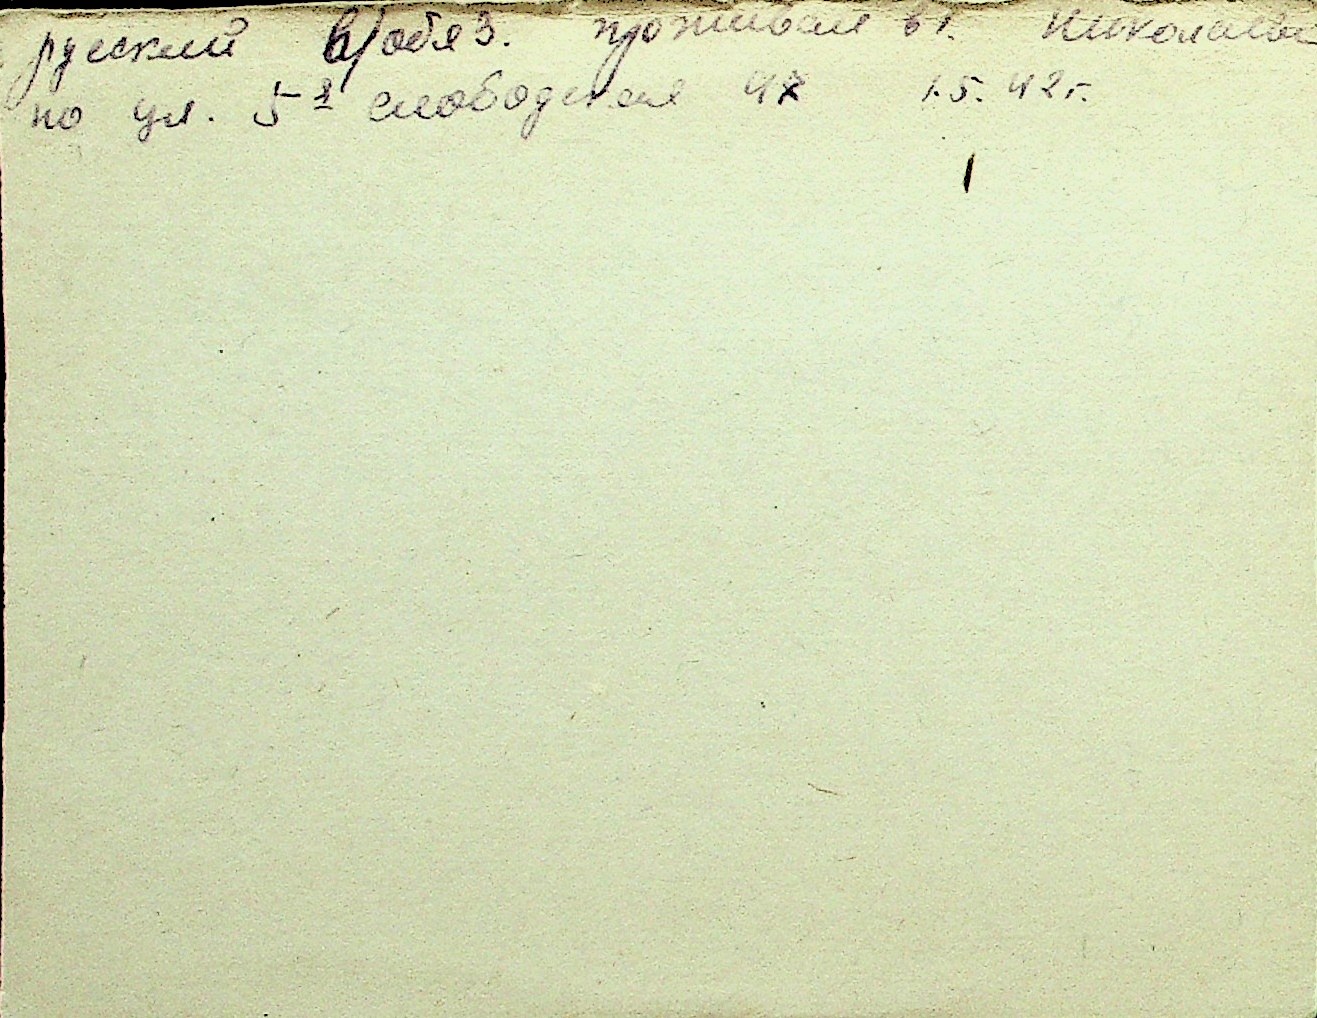 русский в/обяз. проживал в г. Николаеве
по ул. 5я слободская 47 1.5.42г.